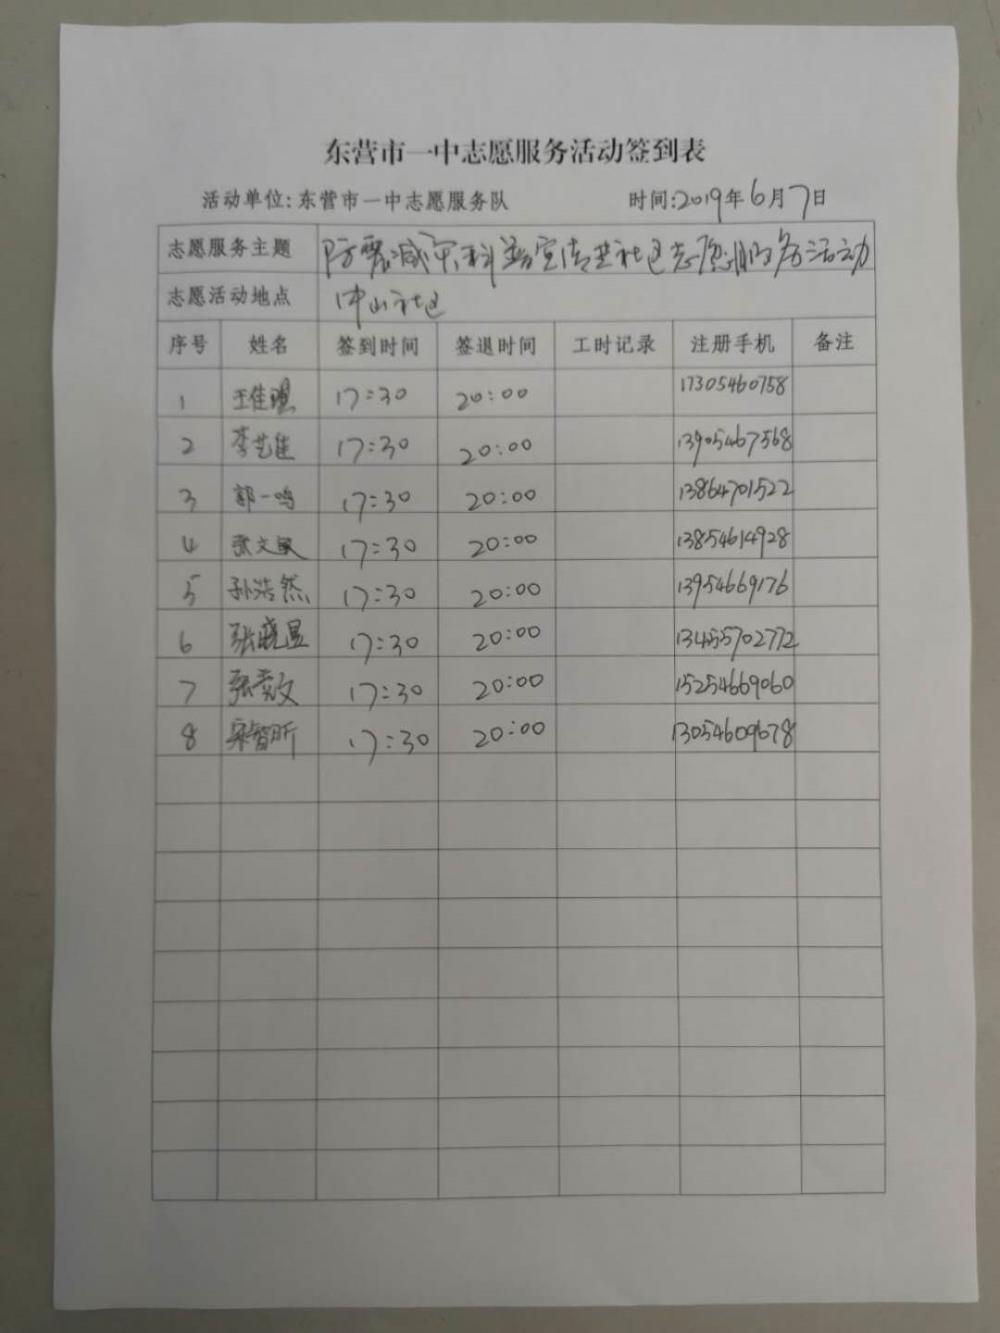 东营市一中志愿服务活动签到表
活动单位:东营市一中志愿服务队 时间:2019年6月7日
志愿服务主题 防震减灾科普宣传进社区志愿服务活动
志愿活动地点 中山社区
序号 姓名 签到时间 签退时间 工时记录 注册手机 备注
1 王佳 17:30 20:00 17305460758
2 李艺佳 17:30 20:00 13905467568
3 郭一鸣 17:30 20:00 13864701522
4 张文 17:30 20:00 13854614928
5 孙浩然 17:30 20:00 13954669176
6 张晓昱 17:30 20:00 13455702772
7 张文 17:30 20:00 15254669060
8 宋智昕 17:30 20:00 13054609678